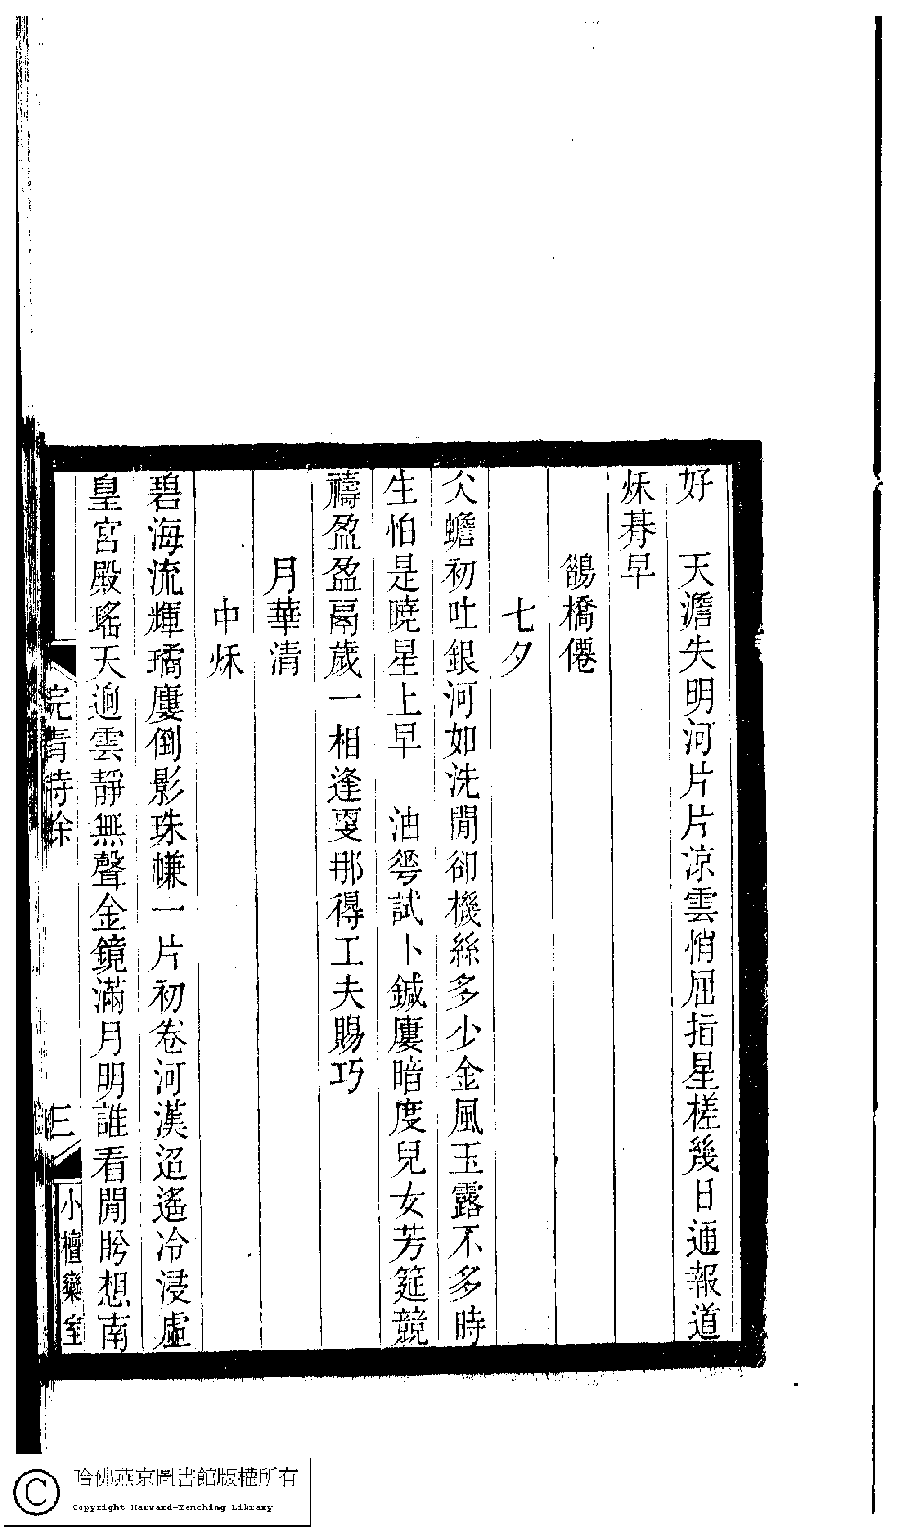 好　天澹失明河片片涼雲悄屈指星槎幾日通報道
秌朞早
鵲橋僊
七夕
仌蟾初吐銀河如洗閒卻機絲多少金風玉露不多時
生怕是曉星上早　油花試卜鍼廔暗度兒女芳筵競
禱盈盈鬲歲一相逢更那得工夫賜巧
月華清
中秌
碧海流輝璚廔倒影珠㡘一片初卷河漢迢遙冷浸虛
皇宮殿瑤天迥雲靜無聲金鏡滿月明誰看閒盻想南
三
小檀欒室
哈佛燕京圖書館版權所有
Copyright Harvard-Yenching Library